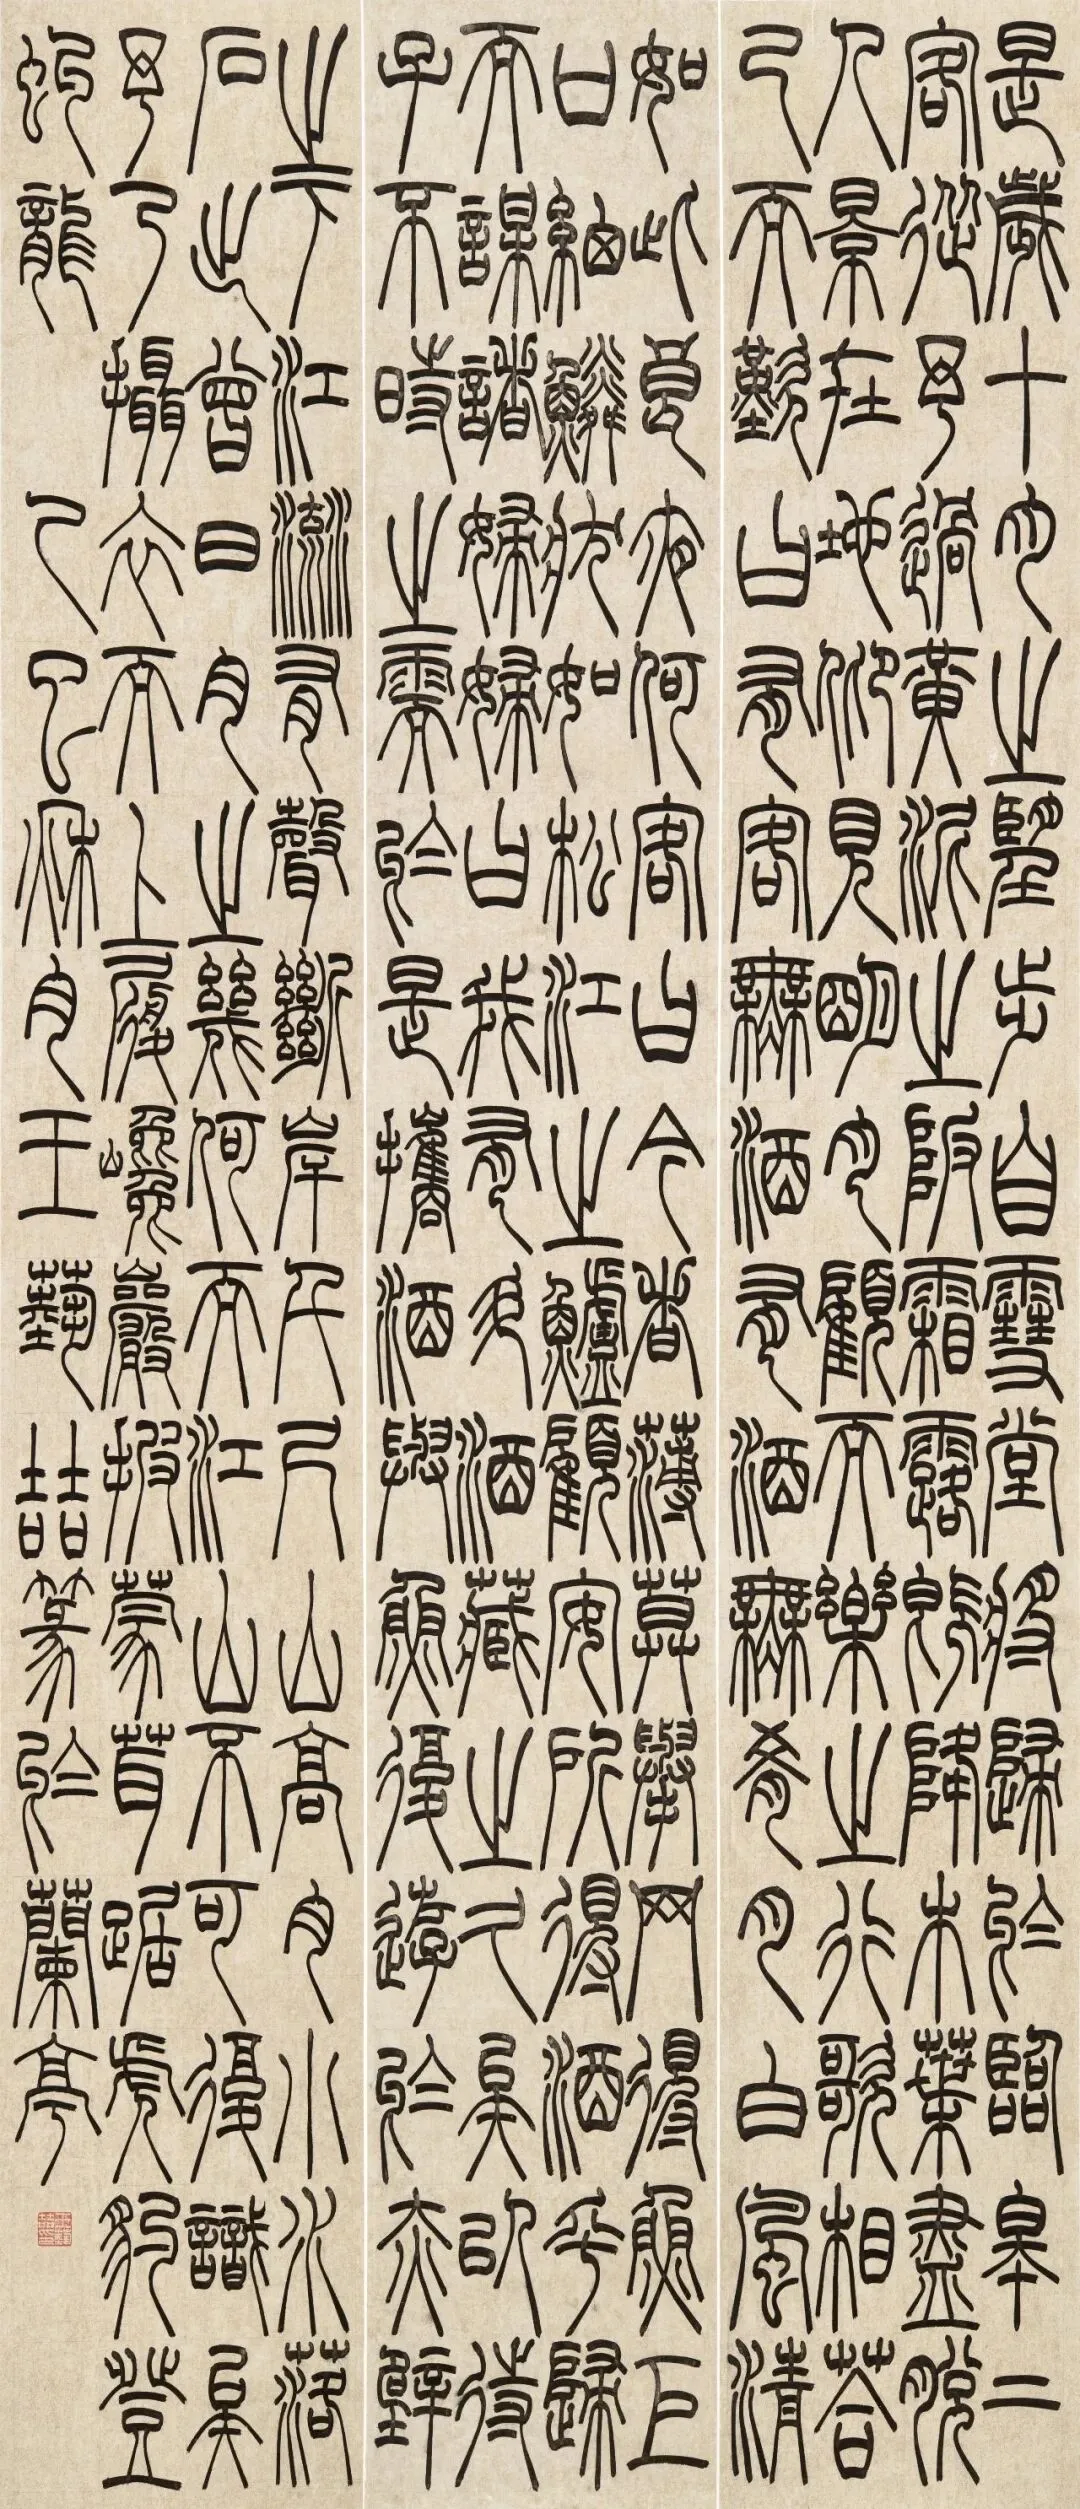 是歲十月之望步自雪堂將歸於臨皋二
客從予過黃泥之阪霜露既降木葉盡脫
人景在地仰見明月顧而樂之行歌相答
已而歎曰有客無酒有酒無肴月白風清
如此良夜何客曰今者薄莫舉网得魚巨
口細鱗狀如松江之鱸顧安所得酒乎歸
而謀諸婦婦曰我有斗酒藏之久矣以待
子不時之需於是攜酒與魚復遊於赤壁
之下江流有聲斷岸千尺山高月小水落
石出曾日月之幾何而江山不可復識矣
予乃攝衣而上履巉巖披蒙茸踞虎豹登
虯龍 乙巳月王喆篆於蘭亭